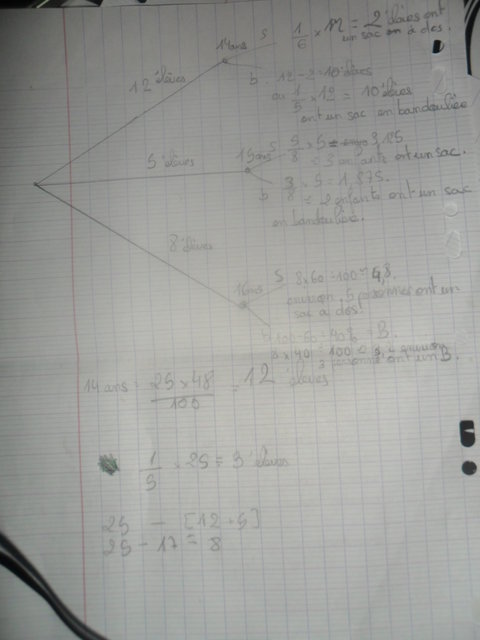 14 ans
S
1/6 × 12 = 2 élèves ont
un sac à dos.
12 élèves
b. 12 - 2 = 10 élèves
ou 1/5 × 12 = 10 élèves
ont un sac en bandoulière
5 élèves
15 ans
S 5/8 × 5 = 3,125
= 3 enfants ont un sac.
b 3/8 × 5 = 1,875.
= 2 enfants ont un sac
en bandoulière.
8 élèves
16 ans
S 8 × 60 : 100 = 4,8.
environ 5 personnes ont un
sac à dos.
100 - 60 = 40% = B.
8 × 40 : 100 = 3, environ
3 personnes ont un B.
14 ans = 25 × 48 / 100 = 12 élèves
1/5 × 25 = 5 élèves
25 - [12 + 5]
25 - 17 = 8